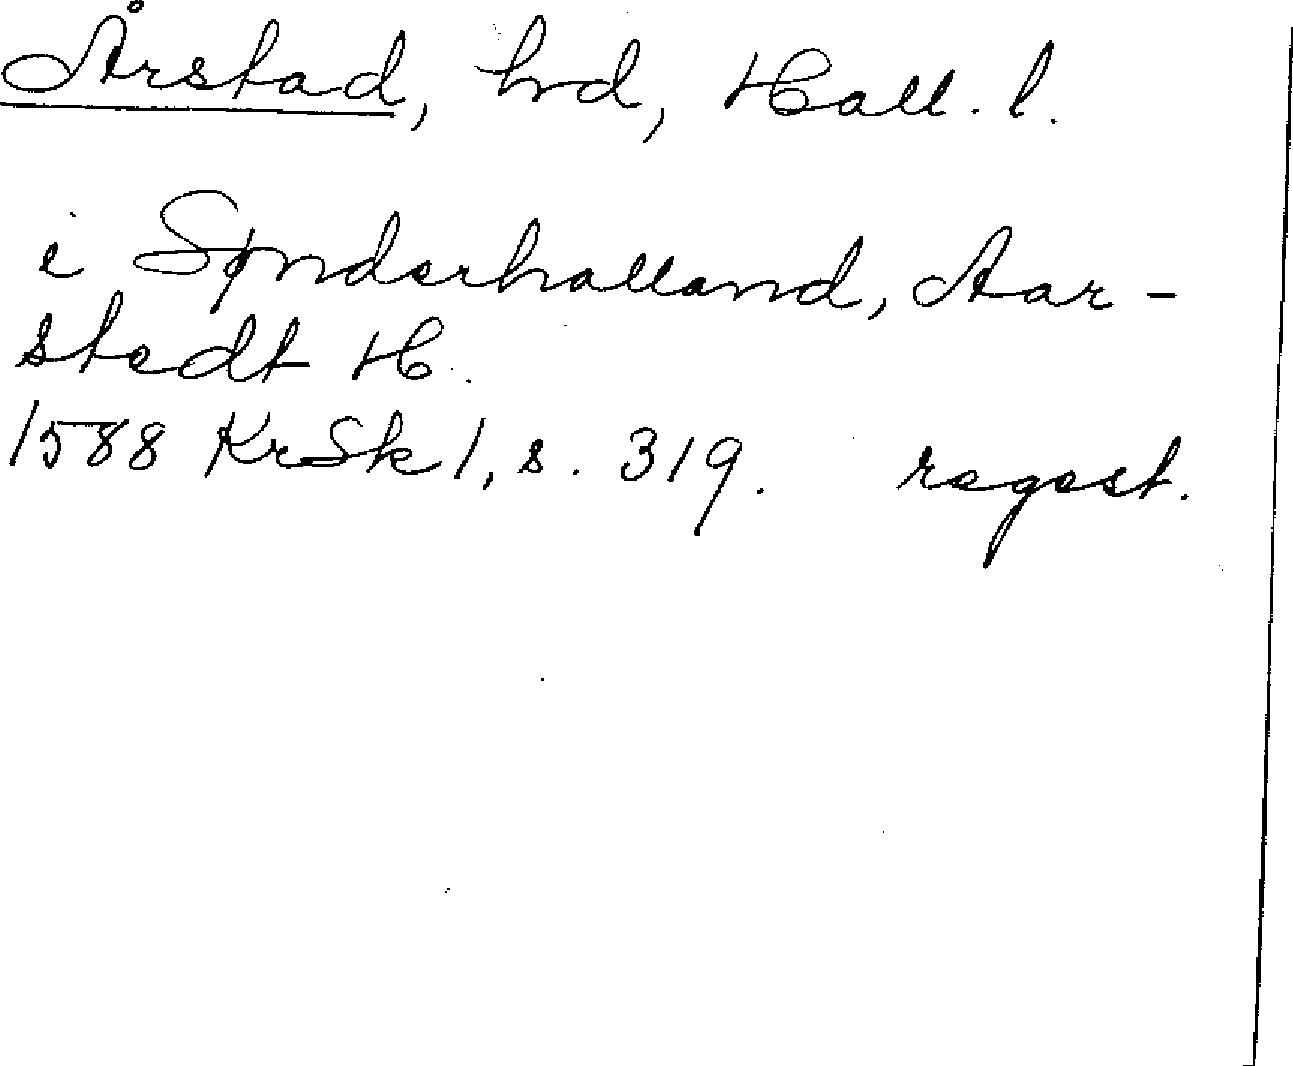 Årstad, hrd, Hall. l.
i Sønderhalland, Aar-
stedt H.
1588 KrSk 1, s. 319. regest.